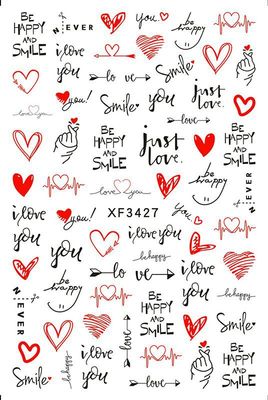 BE
HAPPY
AND
SMILE
EVER
you!
be
happy
i love
you
you
lo ve
Smile
love you
you!
Smile
you
just
love.
BE
HAPPY
AND
SMILE
just
love.
love you
be
happy
EVER
i love
you
you!
XF3427
you
i love
you
be
happy
lo ve
behappy
EVER
BE
HAPPY
AND
SMILE
BE
HAPPY
AND
SMILE
i love
you
love
Smile
behappy
love
Smile